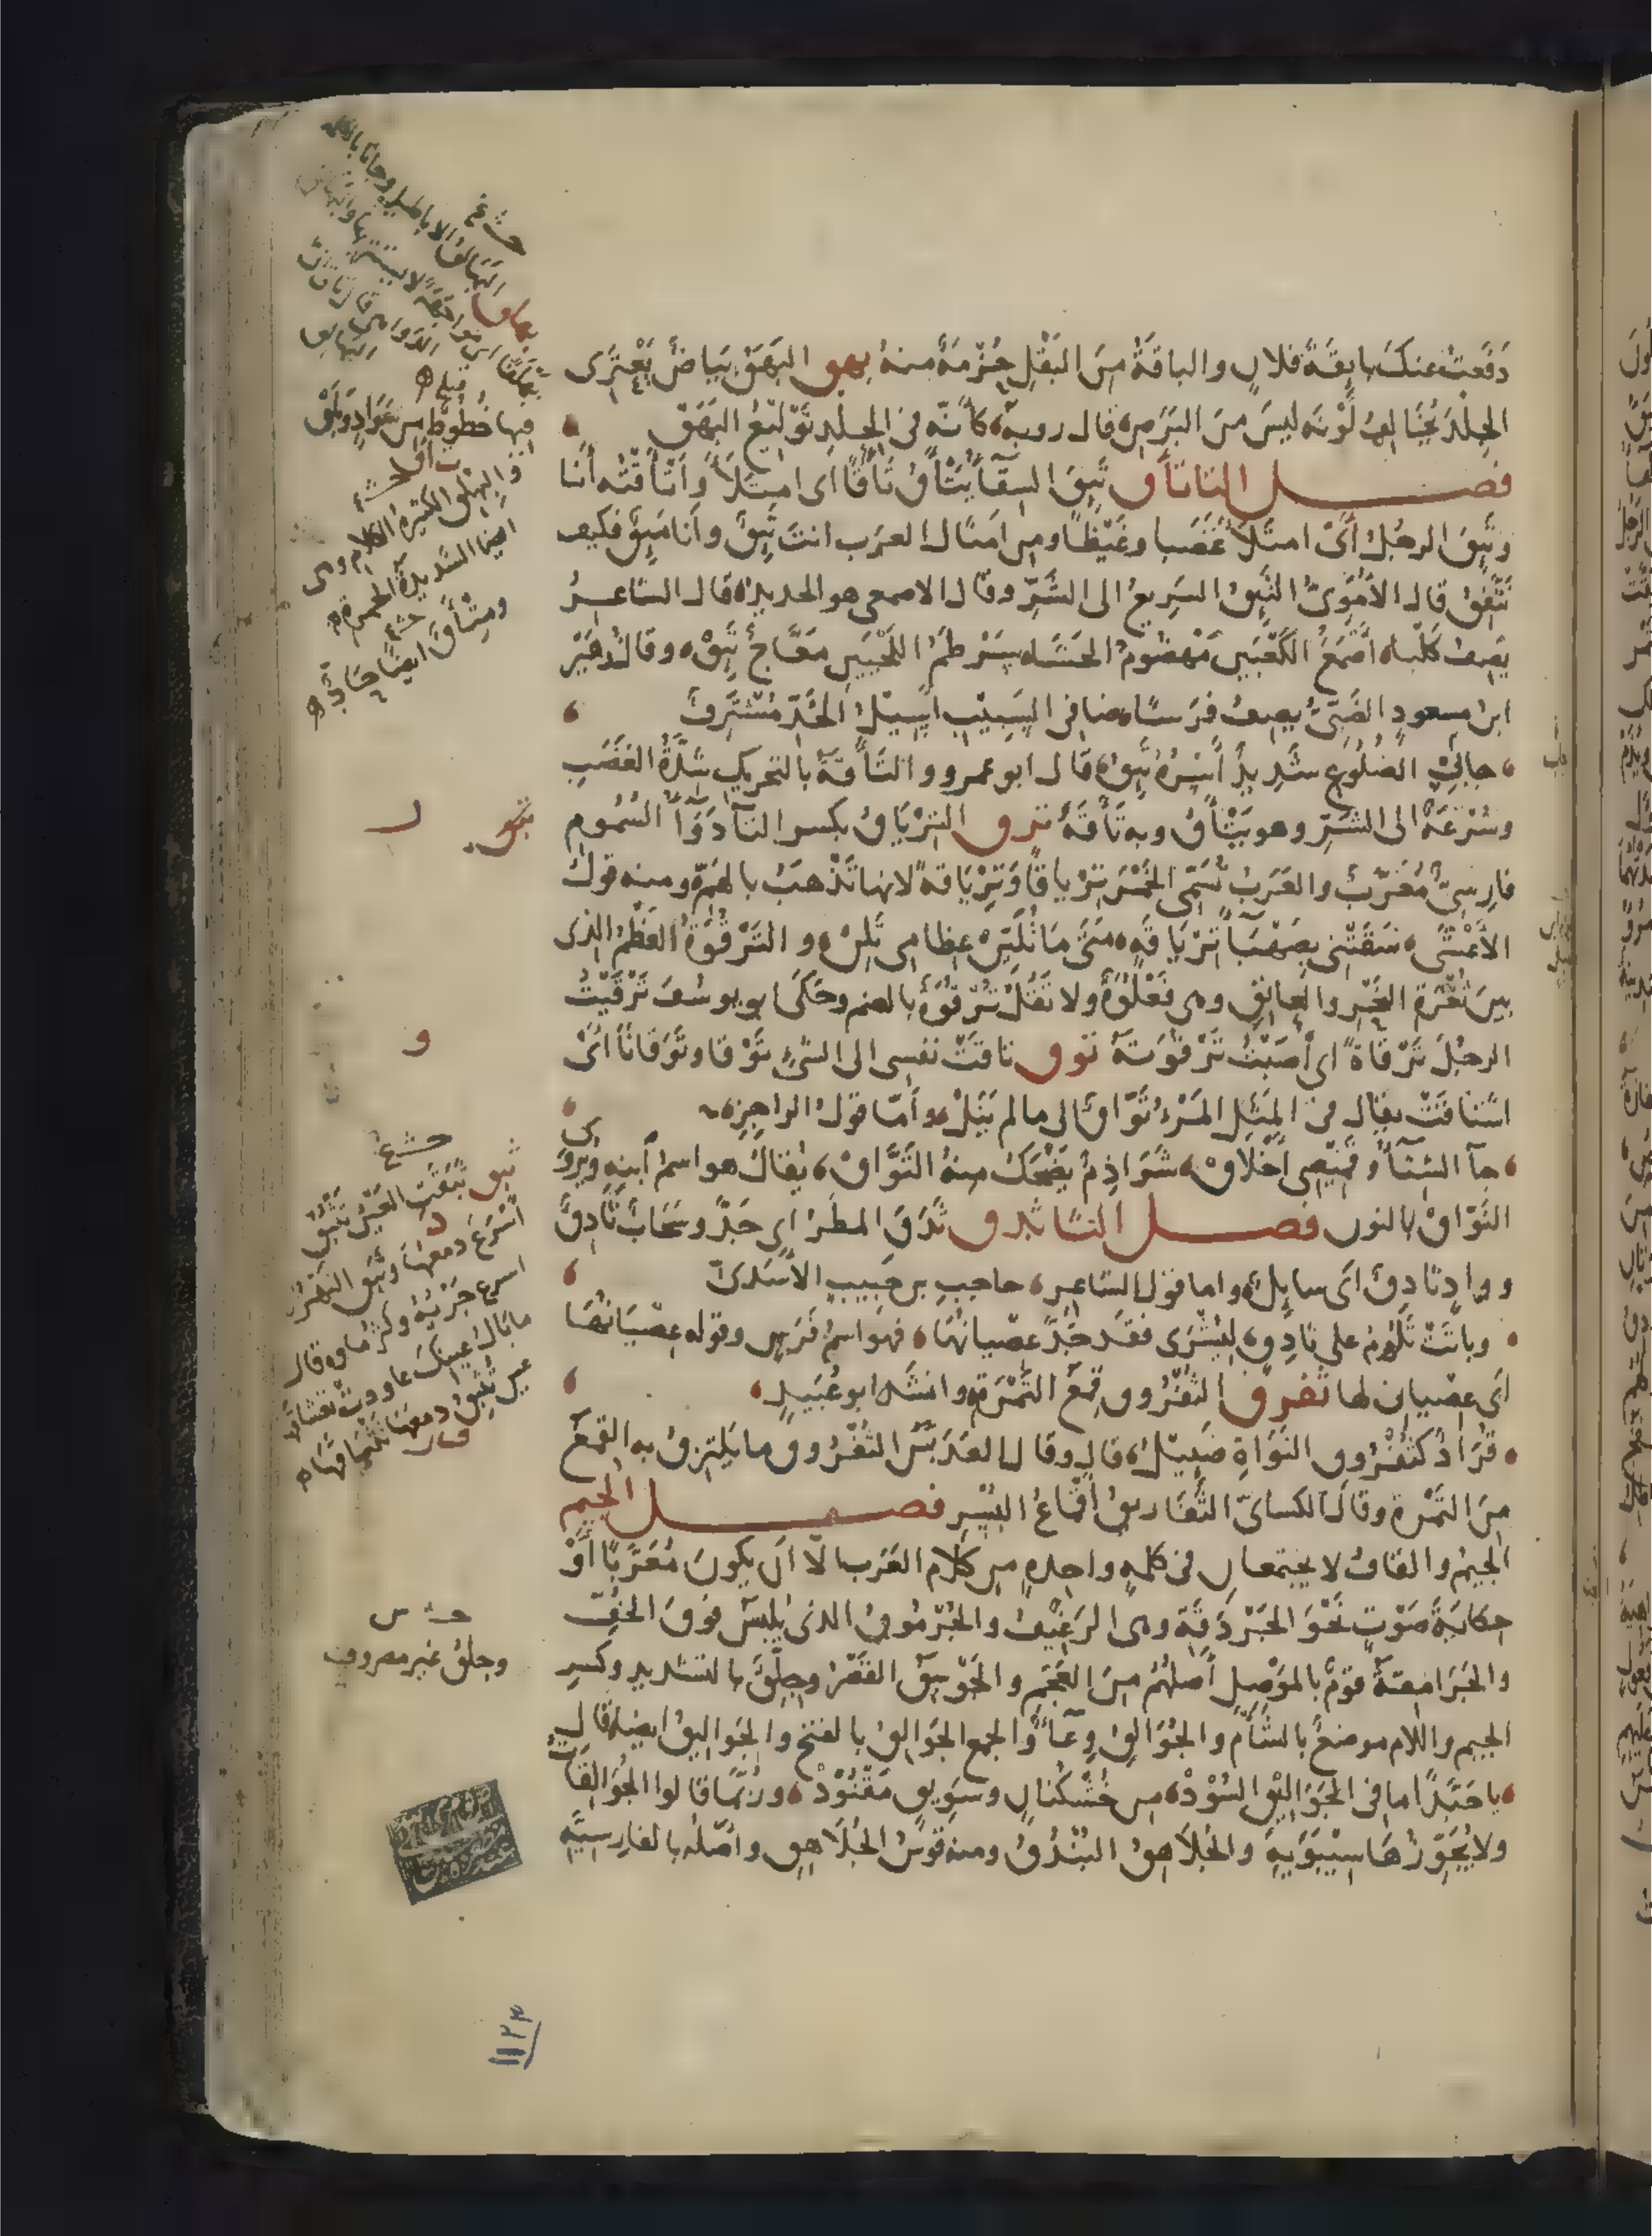 دَفَعتُ عنكَ بايقةَ فلانٍ والباقةُ مِنَ البَقْلِ حُزْمَةٌ منهُ بهق البَهَقُ بَيَاضٌ يَعْتَرِى
الجِلدَ يُخَالِفُ لَوْنَه ليسَ مِنَ البَرَصِ قال روبة كأنّه فى الجلدِ تَوْلِيْعُ البَهَقْ
فصل التاء تأق تَئِقَ السِقآءُ يَتْأَقُ تَأَقًا اى امتلَأَ وأَتْأَقْتُه أنا
وتَئِقَ الرجُلُ أىْ امتلَأَ غَضَبا وغَيْظًا ومن امثال العرب انتَ تَئِقٌ وأنا مَئِقٌ فكيف
نَتَّفِقُ قال الأُمَوِىُّ التَئِقُ السَرِيعُ الى الشَّرِّ وقال الاصمعى هو الحديد قال الشاعرُ
يصِفُ كَلْبا أَصْمَعُ الكَعْبَينِ مَهْضُومُ الحَشَا سَرْطَمُ اللَحْيَينِ مَعَّاجٌ تَئِقْ وقال زهَيرُ
ابنُ مسعودٍ الضَبِّىُّ يصِفُ فرَسًا ضافِى السَبِيْبِ اسِيْلُ الخَدِّ مُشْتَرِفٌ
حابِى الضُلُوعِ شَدِيدٌ أَسْرُهُ تَئِقُ قال ابو عمرو والتأَقَةُ بالتحريك شدَّةُ الغَضَبِ
وسُرْعَةٌ الى الشرِّ وهو يَتْأَقُ وبه تَأَقَةٌ ترق التِرْيَاقُ بكسر التآء دَوَآءُ السُمُومِ
فارسِىٌّ مُعَرَّبٌ والعَرَبُ تُسَمِّى الخَمْرَ تِرْياقًا وَتِرْيَاقةً لانها تَذْهبُ بالهَمِّ ومنه قول
الأَعْشَى سَقَتْنى بِصَهْبَآءَ تِرْيَاقَةٍ مَتَى مَا تُلَيِّنْ عِظامِى تَلِنْ والتَرْقُوَةُ العَظْمُ الذى
بينَ ثُغْرَةِ النَحْرِ والعاتِقِ وهى فَعْلُوَةٌ ولا تَقُلْ تُرْقُوَةٌ بالضم وحَكَى ابو يوسُفَ تَرْقَيْتُ
الرجُلَ تَرْقَاةً اى أَصَبْتُ تَرْقُوَتَهُ توق تاقَتْ نفسِى الى الشئِ تَوْقا وتَوَقَانًا أىْ
اشتاقَتْ يقال فى المَثَلِ المَرْءُ تَوَّاقٌ الى مالم يَنَلْ وأَمّا قولُ الراجِزِ
جآء الشِتَآءُ وقَمِيْصِى أَخْلَاقْ شَرَاذِمٌ يَضْحَكُ مِنهُ التَوَّاقْ يُقالُ هو اسمُ ابنِهِ ويُروَى
النَوَّاقْ بالنون فصل الثاء ثدق ثَدَقَ المطَرُ اى جَدَّ وسَحَابٌ ثَادِقٌ
ووادٍ ثادِقٌ اى سايلٌ واما قول الشاعر حاجبِ بن حَبيبٍ الأسَدىِّ
وباتَتْ تَلُوْمُ على ثادِقٍ ليُشْرَى فقَد جَدَّ عصْيانُهَا فهو اسمُ فَرَسٍ وقوله عِصْيَانُهَا
اى عصْيانى لها ثفرق الثُفْرُوق قِمَعُ التَّمْرَةِ وانشد ابو عُبَيدٍ
قُرَادٌ كثُفْرُوقِ النَوَاةِ ضَئِيْلُ قال وقال العَدَبَّسُ الثُفْرُوق ما يَلتزِقُ به القِمَعُ
مِنَ التَمْرة وقال الكسائىُّ الثَّفَاريقُ أَقْمَاعُ البُسْرِ فصل الجيم
الجيمُ والقافُ لا يجتمعانِ فى كلمةٍ واحدةٍ من كلام العَرَب الّا ان يكونَ مُعَرَّبًا أَوْ
حكايَةَ صَوْتٍ نَحْوَ الجَرْدَقَةِ وهى الرَغِيْفُ والجُرْمُوقُ الذى يُلبَسُ فَوقَ الخُفِّ
والجَرَامِقةُ قومٌ بالمَوْصِلِ أَصلُهُمْ مِنَ العَجَمِ والجَوْسَقُ القَصْرُ وجِلَّقُ بالتشديد وكَسرِ
الجيم واللام موضعٌ بالشأْم والجُوَالِقُ وِعَآءٌ والجمع الجَوَالِقُ بالفتح والجَوَاليقُ ايضا قال
يا حَبَّذَا ما فى الجَوَالِيْقِ السُوْدْ من خُشْكُنانٍ وسَوِيقٍ مَقْنُوْدْ ورُبَّمَا قالوا الجُوَالِقَاتُ
ولا يُجَوِّزُهَا سِيْبَوَيهِ والجُلَاهِقُ البُنْدُقُ ومنه قَوسُ الجُلَاهِقِ وأَصْلُه بالفارسيّةِ
فيها خُطُوطٌ من سَوَادٍ وَبَلَقْ
ثبق ثَبَقَتِ العَيْنُ تَثْبُقُ
أَسْرَعَ دمعُهَا وثَبَق النَهْرُ
اسرع جَرْيُهُ وكَثُرَ ماؤه قال
ما بالُ عينِكَ عاودتْ تَعْشاقَها
عين تَثَبَّقَ دمعُهَا تَثْباقَهَا
وجِلِّقُ غير مصروف
١١٢٣